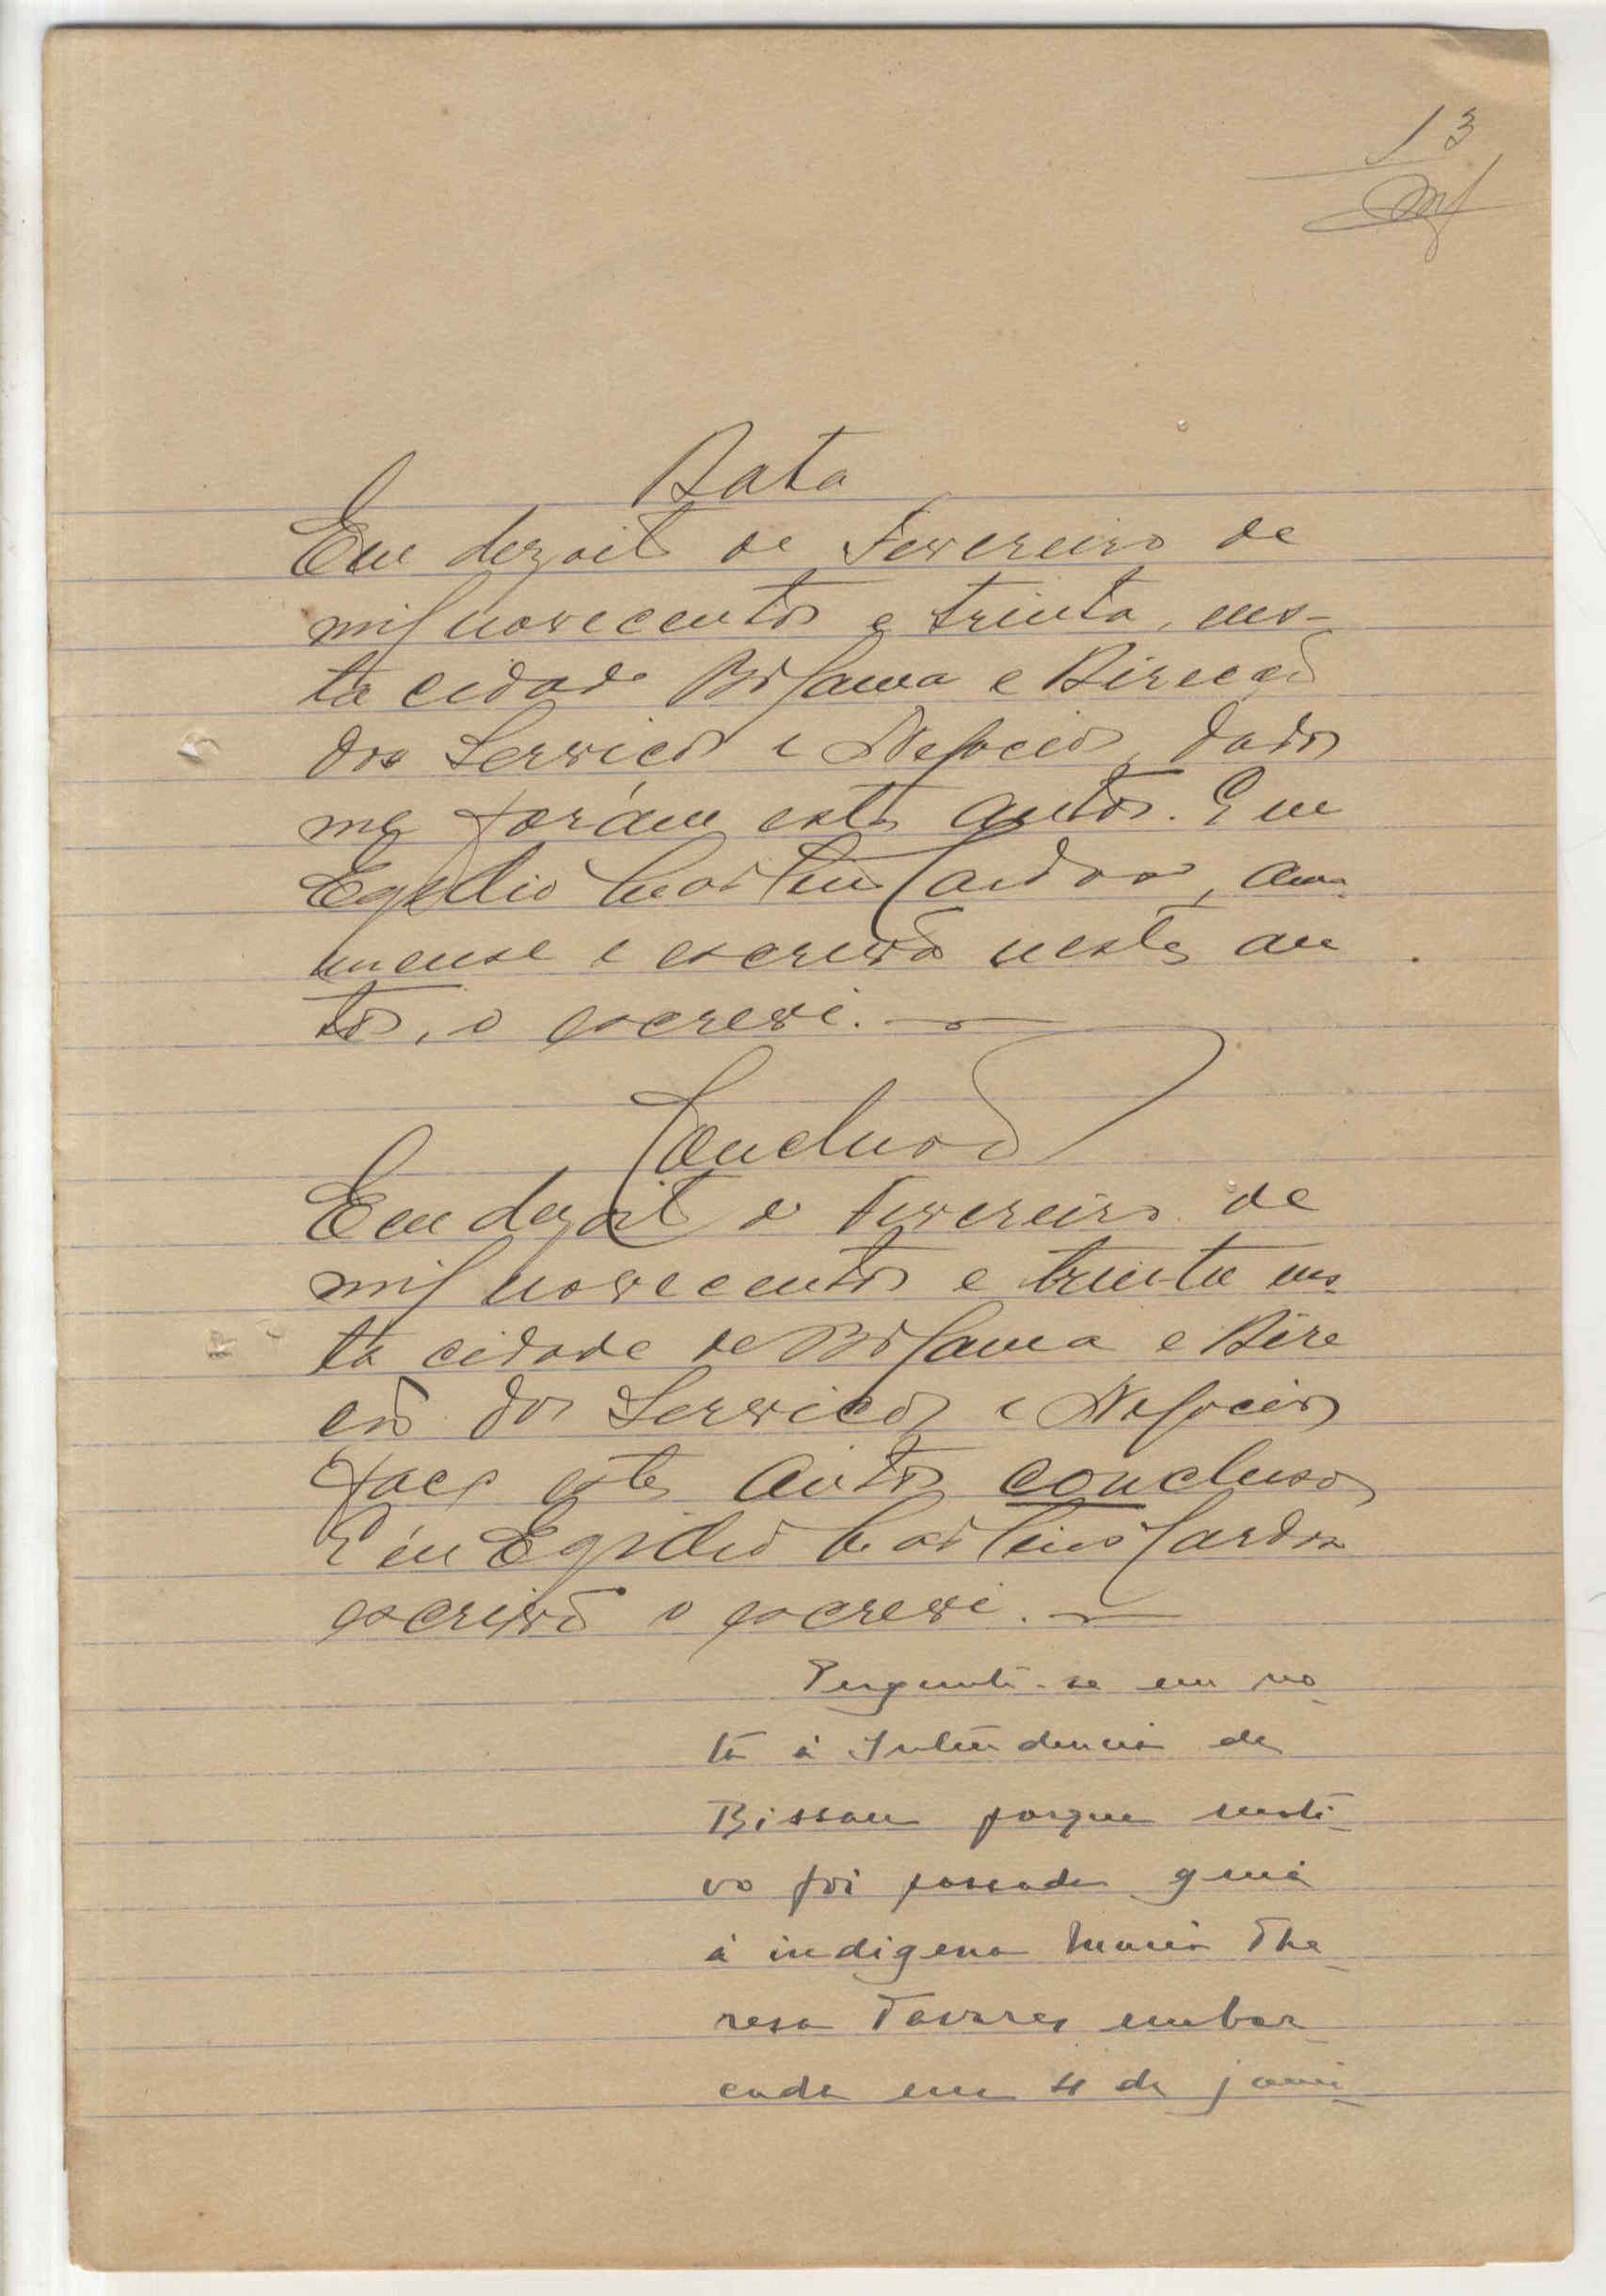 13
Data
Em dezoito de Fevereiro de
mil novecentos e trinta, nes-
ta cidade Bolama e Direcção
dos Serviços e Negocios, dados
me foram estes autos. E eu
Egidio Martins Cardoso, ama-
nuense e escrivão nestes au
tos, o escrevi.
Conclusão
Em dezoito de Fevereiro de
mil novecentos e trinta nes-
ta cidade de Bolama e Dire
cão dos Serviços e Negocios
faço estes autos conclusos
E eu Egidio Martins Cardoso
escrivão o escrevi.
Pergunte-se em no-
ta á Intendencia de
Bissau porque moti-
vo foi passada guia
á indigena Maria The-
resa Tavares embar-
cada em 4 de janei-